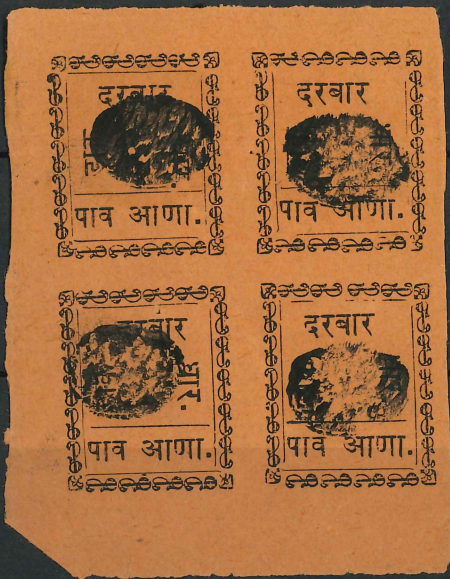 दरबार
पाव आणा.
दरबार
पाव आणा.
दरबार
धार.
पाव आणा.
दरबार
पाव आणा.